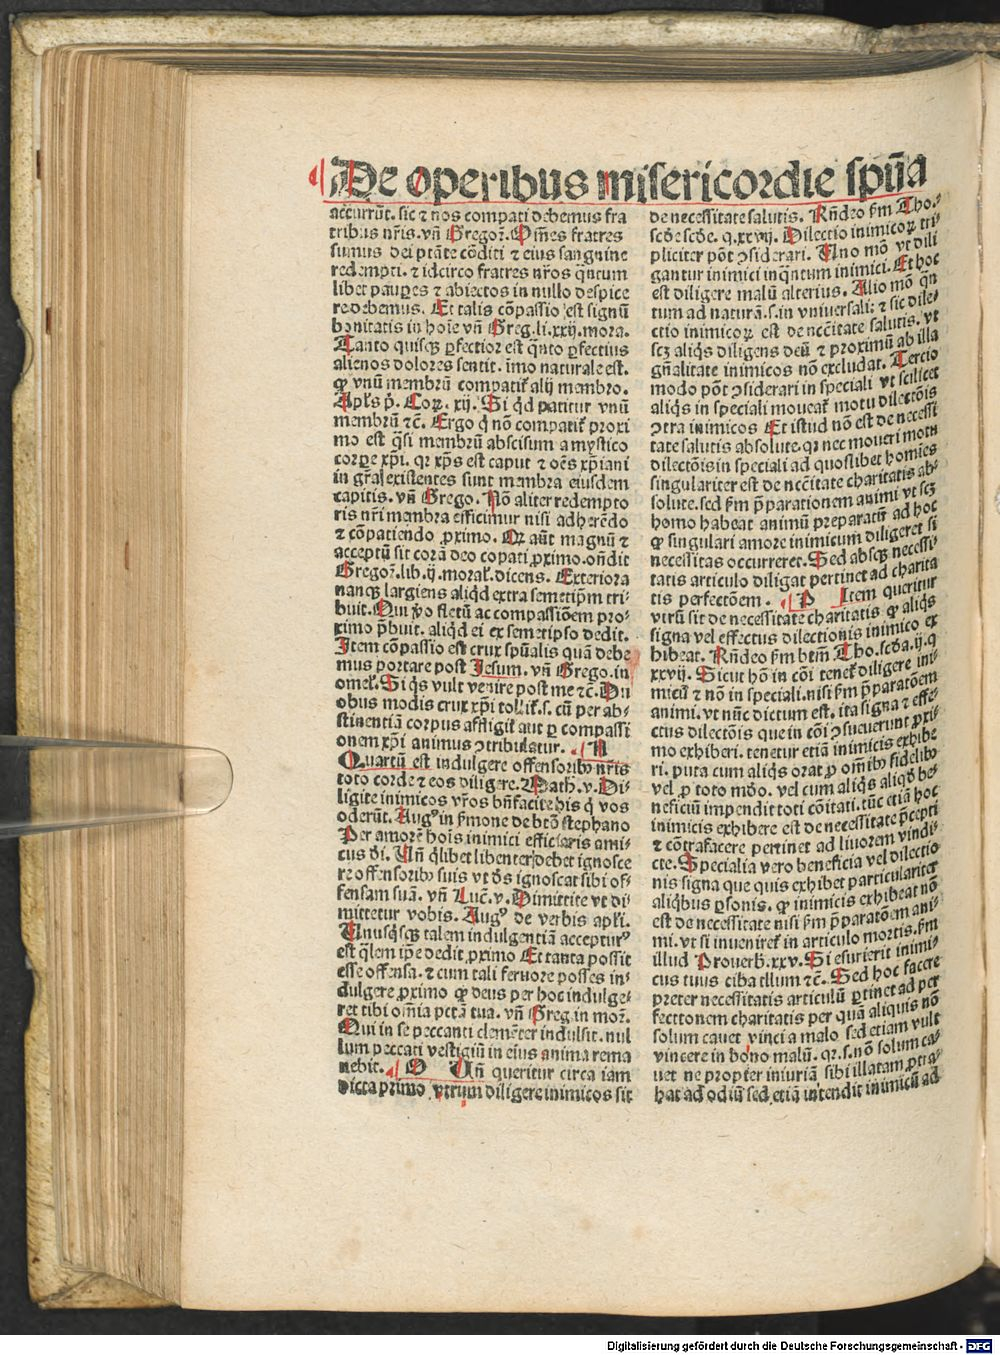 De operibus misericordie spūa
accurrūt. sic ⁊ nos compati debemus fra
tribus nr̄is. vn̄ Gregoꝛ. Om̄es fratres
sumus dei ptāte cōditi ⁊ eius sanguine
redempti. ⁊ idcirco fratres nr̄os q̄ntum
libet pauꝑes ⁊ abiectos in nullo despice
re debemus. Et talis cōpassio est signū
bonitatis in hoīe vn̄ Greg. li. xxij. mora.
Tanto quisqꝫ ꝑfectior est q̄nto ꝑfectius
alienos dolores sentit. īmo naturale est.
ꝙ vnū membrū compatit̄ alij membro.
Apl̄s p̄. Coꝝ. xij. Si q̇d patitur vnū
membrū ⁊c̄. Ergo q̇ nō compatit̄ proxi
mo est q̄si membrū abscisum a mystico
corꝑe xp̄i. qꝛ xp̄s est caput ⁊ oēs xp̄iani
in gr̄a existentes sunt membra eiusdem
capitis. vn̄ Grego. Nō aliter redempto
ris nr̄i membra efficimur nisi adherēdo
⁊ cōpatiendo ꝓximo. Qꝛ aūt magnū ⁊
acceptū sit corā deo copati ꝓximo. on̄dit
Gregoꝛ. lib. ij. moral̄. dicens. Exteriora
nanqꝫ largiens aliq̇d extra semetip̄m tri-
buit. Qui v̓o fletū ac compassiōem pro-
ximo p̄buit. aliq̇d ei ex semetipso dedit.
Item cōpassio est crux spūalis quā debe
mus portare post Iesum. vn̄ Grego. in
omel̄. Si q̇s vult venire post me ⁊c̄. Du
obus modis crux xp̄i tollit̄. s. cū per ab-
stinentiā corpus affligit̄ aut ꝑ compassi
onem xp̄i animus ꝯtribulatur. N
Quartū est indulgere offensoribꝰ nr̄is
toto corde ⁊ eos diligere. Math. v. Di-
ligite inimicos vr̄os bn̄facite his q̇ vos
oderūt. Augꝰ in ẜmone de btō stephano
Per amorē hoīs inimici efficiaris ami-
cus dī. Vn̄ q̇libet libenter debet ignosce
re offensoribꝰ suis vt dn̄s ignoscat sibi of-
fensam suā. vn̄ Luc̄. v. Dimittite vt di-
mittetur vobis. Augꝰ de verbis apl̄i.
Vnusq̇sqꝫ talem indulgentiā accepturꝰ
est q̄lem ip̄e dedit ꝓximo Et tanta possit
esse offensa. ⁊ cum tali feruore posses in-
dulgere ꝓximo ꝙ deus per hoc indulge-
ret tibi om̄ia pctā tua. vn̄ Greg. in moꝛ.
Qui in se peccanti clemēter indulsit. nul
lum peccati vestigiū in eius anima rema
nebit. O Vn̄ queritur circa iam
dicta primo vtrum diligere inimicos sit
de necessitate salutis. Rn̄deo ẜm Tho.
scd̄e scd̄e. q. xxvij. Dilectio inimicoꝝ tri-
pliciter pōt ꝯsiderari. Vno mō vt dili
gantur inimici inq̄ntum inimici. Et hoc
est diligere malū alterius. Alio mō q̄n
tum ad naturā. s. in vniuersali: ⁊ sic dile-
ctio inimicoꝝ est de ncc̄itate salutis. vt
scꝫ aliq̇s diligens deū ⁊ proximū ab illa
gn̄alitate inimicos nō excludat. Tercio
modo pōt ꝯsiderari in speciali vt scilicet
aliq̇s in speciali moueat̄ motu dilectōis
ꝯtra inimicos Et istud nō est de necessi
tate salutis absolute. qꝛ nec moueri motu
dilectōis in speciali ad quoslibet homīes
singulariter est de ncc̄itate charitatis ab-
solute. sed ẜm p̄parationem animi vt scꝫ
homo habeat animū preparatū ad hoc
ꝙ singulari amore inimicum diligeret si
necessitas occurreret. Sed absqꝫ necessi-
tatis articulo diligat pertinet ad charita
tis perfectōem. P Item queritur
vtrū sit de necessitate charitatis ꝙ aliq̇s
signa vel effectus dilectionis inimico ex
hibeat. Rn̄deo ẜm btm̄ Tho. scd̄a. ij. q
xxvij. Sicut hō in cōi tenet̄ diligere ini-
micū ⁊ nō in speciali. nisi ẜm p̄paratōem
animi. vt nūc dictum est. ita signa ⁊ effe-
ctus dilectōis que in cōi ꝯsueuerunt ꝓxi-
mo exhiberi. tenetur etiā inimicis exhibe
ri. puta cum aliq̇s orat ꝓ om̄ibꝰ fidelibꝰ
vel ꝓ toto mōo. vel cum aliq̇s aliqd̓ be-
neficiū impendit toti cōitati. tūc etiā hoc
inimicis exhibere est de necessitate p̄cepti
⁊ cōtrafacere pertinet ad liuorem vindi-
cte. Specialia vero beneficia vel dilectio
nis signa que quis exhibet particulariter
aliq̇bus ꝑsonis. ꝙ inimicis exhibeat nō
est de necessitate nisi ẜm p̄paratōem ani-
mi. vt si inueniret̄ in articulo mortis. ẜm
illud Prouerb. xxv. Si esurierit inimi-
cus tuus ciba illum ⁊c̄. Sed hoc facere
preter necessitatis articulū ꝑtinet ad per
fectionem charitatis per quā aliquis nō
solum cauet vinci a malo sed etiam vult
vincere in bono malū. qꝛ. s. nō solum ca-
uet ne propter iniuriā sibi illatam ꝓtra-
hat ad odiū sed etiā intendit inimicū ad
Digitalisierung gefördert durch die Deutsche Forschungsgemeinschaft - DFG